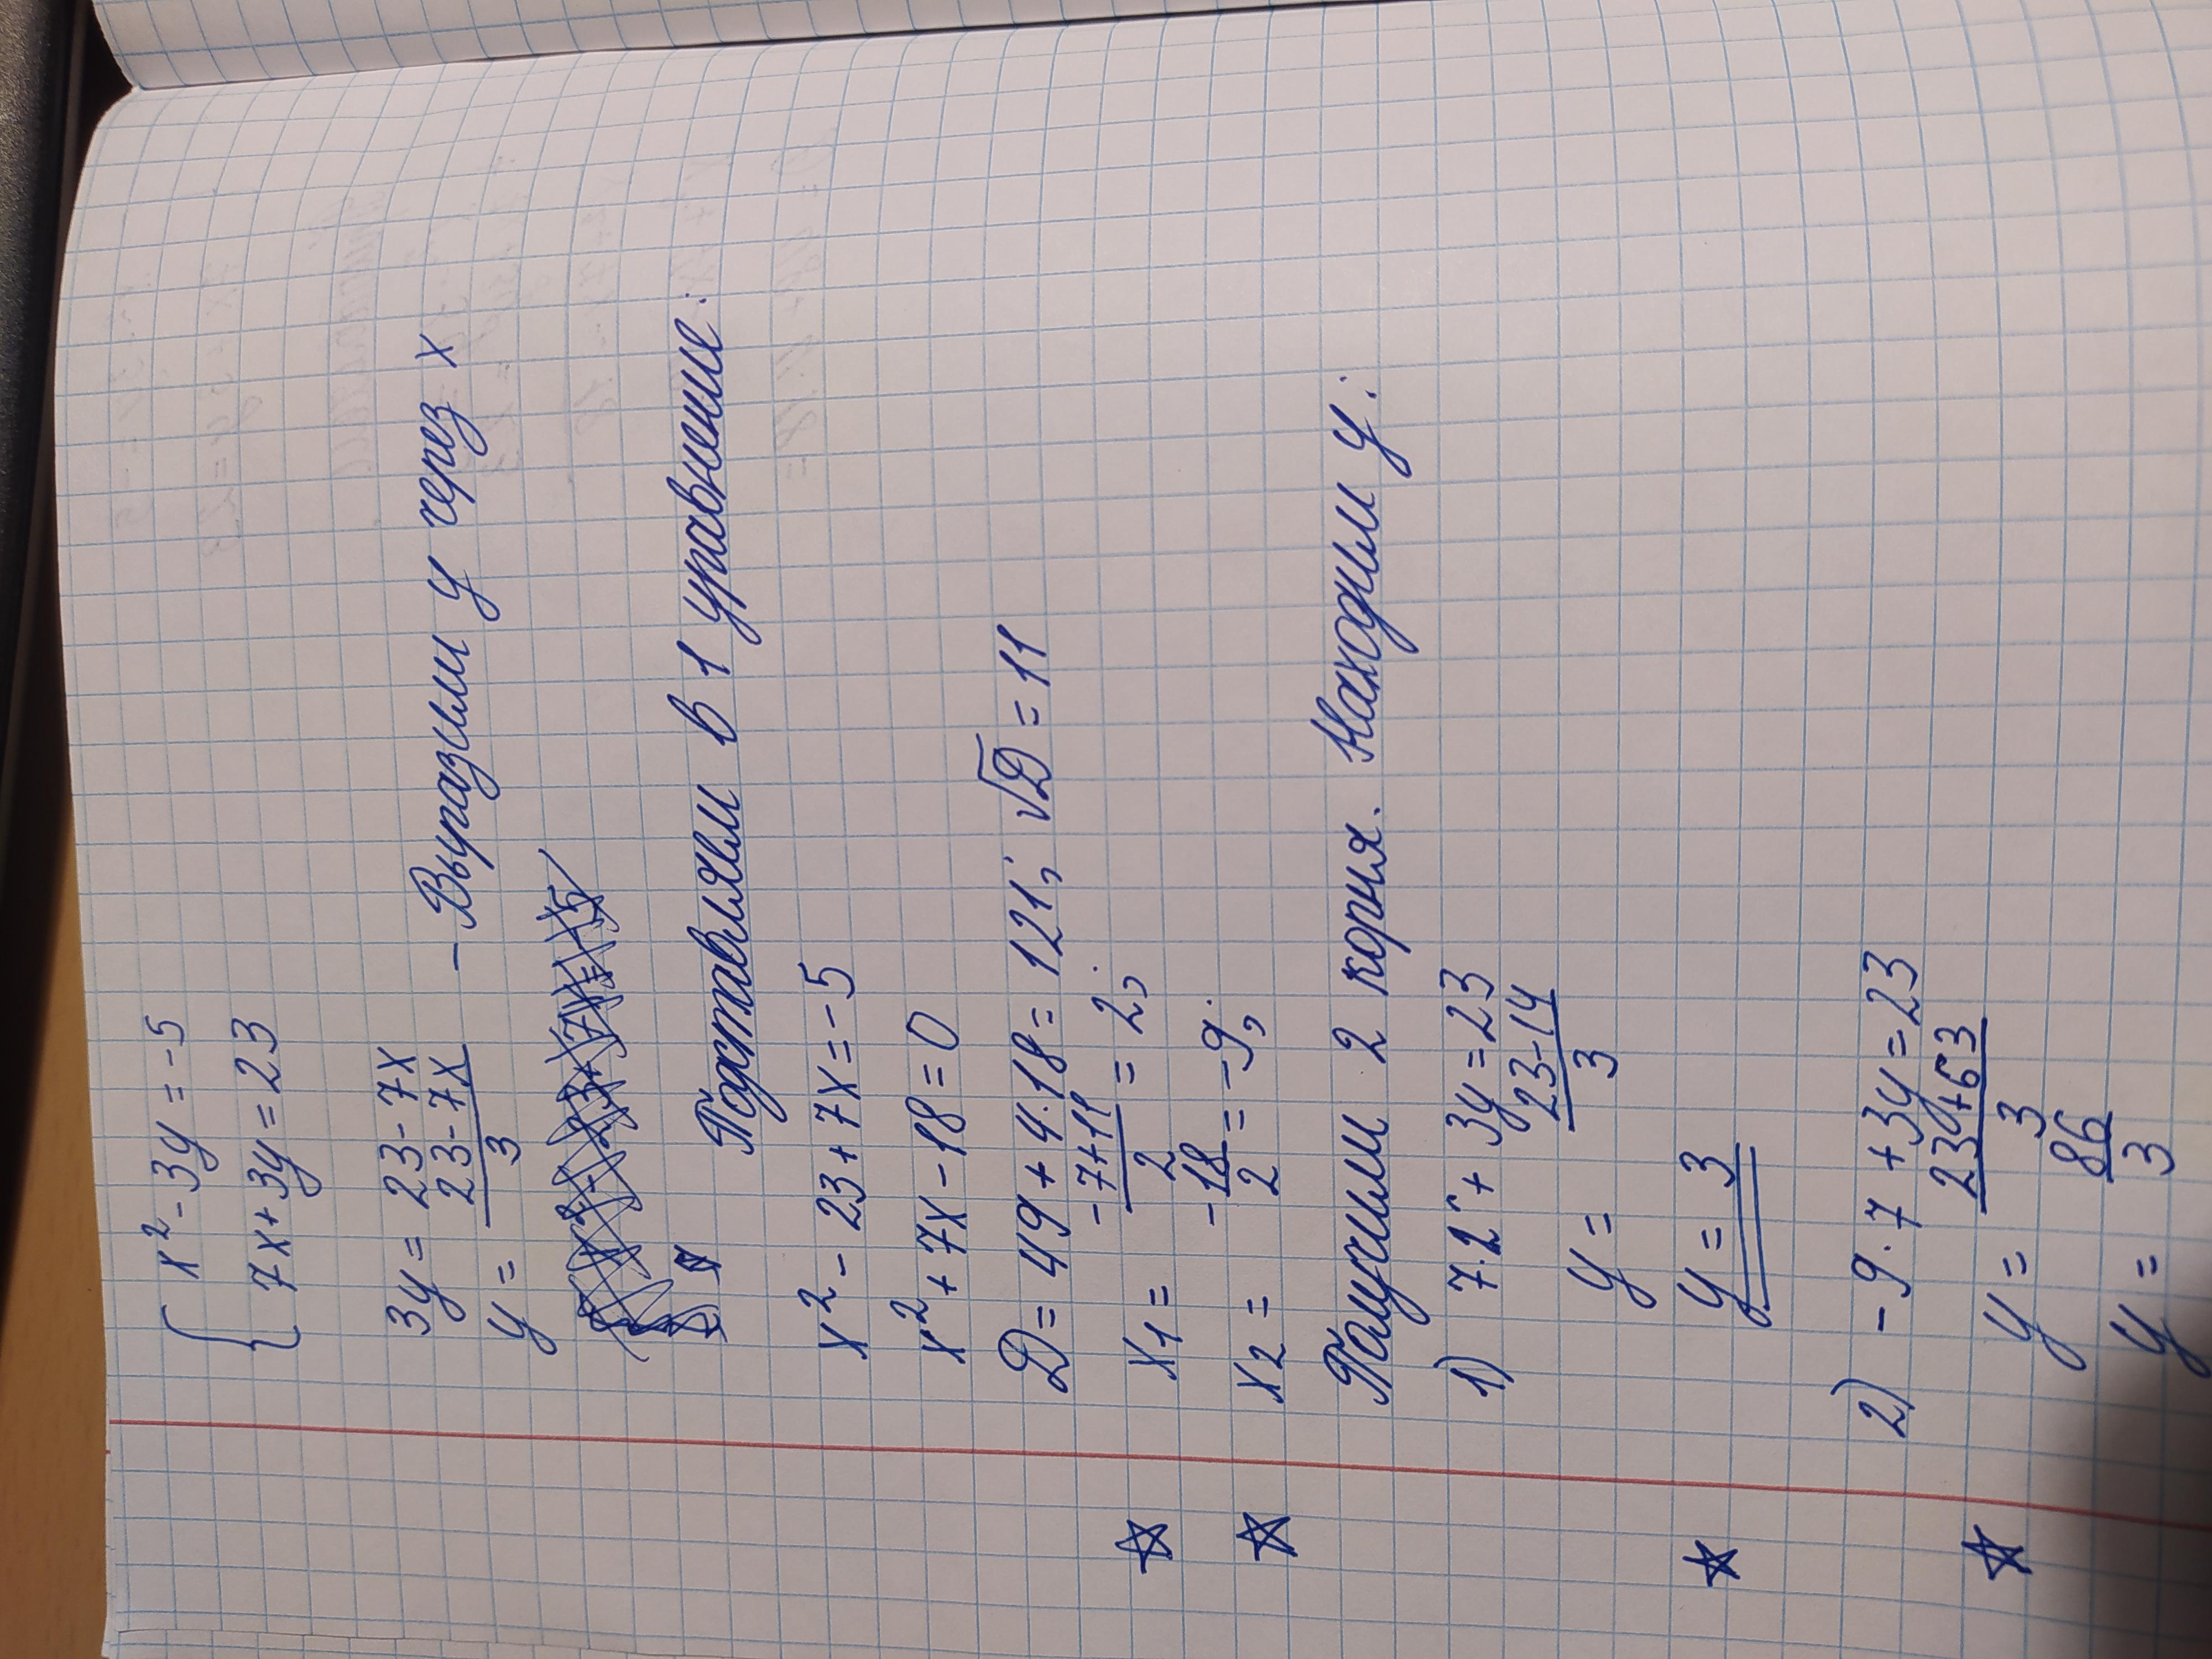 { x² - 3y = -5
7x + 3y = 23
3y = 23 - 7x
y = (23 - 7x)/3 - Выразили y через x
Подставляем в 1 уравнение:
x² - 23 + 7x = -5
x² + 7x - 18 = 0
D = 49 + 4·18 = 121; √D = 11
☆ x1 = (-7+11)/2 = 2;
☆ x2 = -18/2 = -9;
Получили 2 корня. Находим y:
1) 7·2 + 3y = 23
y = (23-14)/3
☆ y = 3
2) -9·7 + 3y = 23
☆ y = (23+63)/3
y = 86/3